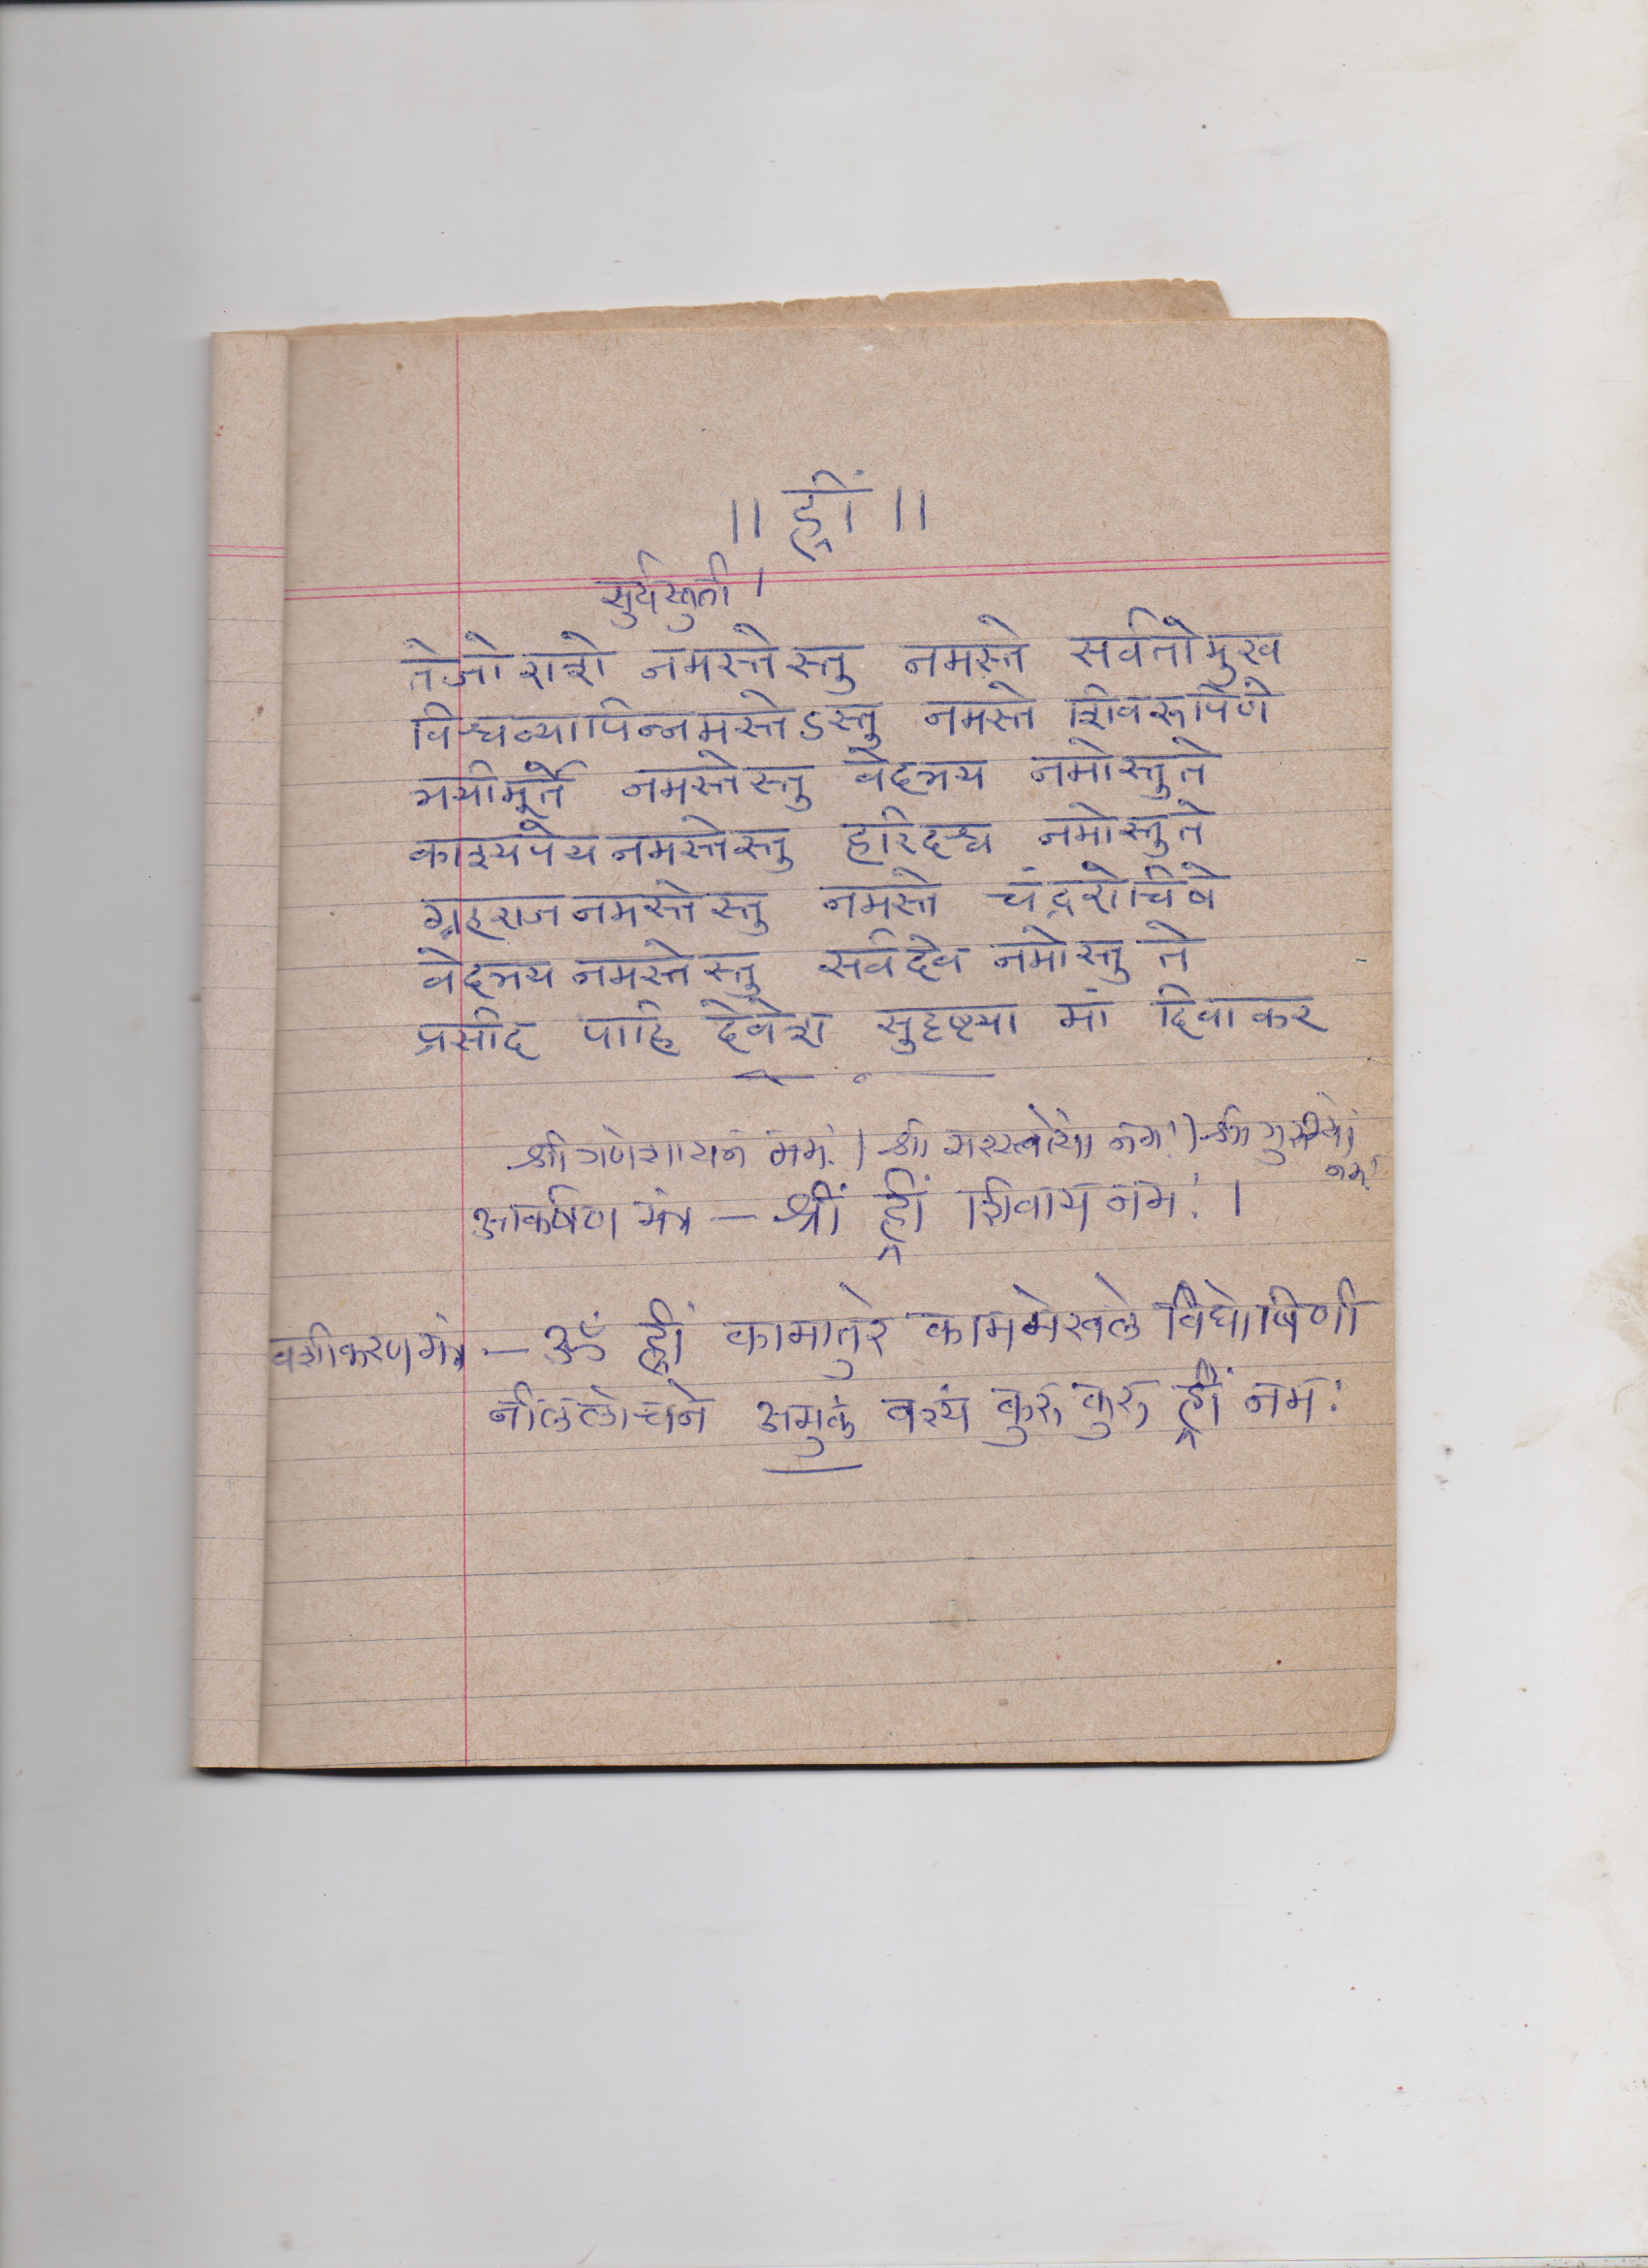 ॥ ह्रीं ॥
सुर्यस्तुती ।
तेजोराशे नमस्तेस्तु नमस्ते सर्वतोमुख
विश्वव्यापिन्नमस्तेऽस्तु नमस्ते शिवरूपिणे
त्रयीमूर्ते नमस्तेस्तु वेदत्रय नमोस्तुते
काश्यपेय नमस्तेस्तु हरिदश्व नमोस्तुते
ग्रहराज नमस्तेस्तु नमस्ते चंद्ररोचिषे
वेदत्रय नमस्तेस्तु सर्वदेव नमोस्तु ते
प्रसीद पाहि देवेश सुदृष्ट्या मां दिवाकर
श्री गणेशाय नमः । श्री नमः । श्री
नमः
आकर्षण मंत्र – श्रीं ह्रीं शिवाय नमः ।
वशीकरण मंत्र – ॐ ह्रीं कामातुरे काममेखले विघोषिणी
नीललोचने अमुकं वश्यं कुरु कुरु ह्रीं नमः